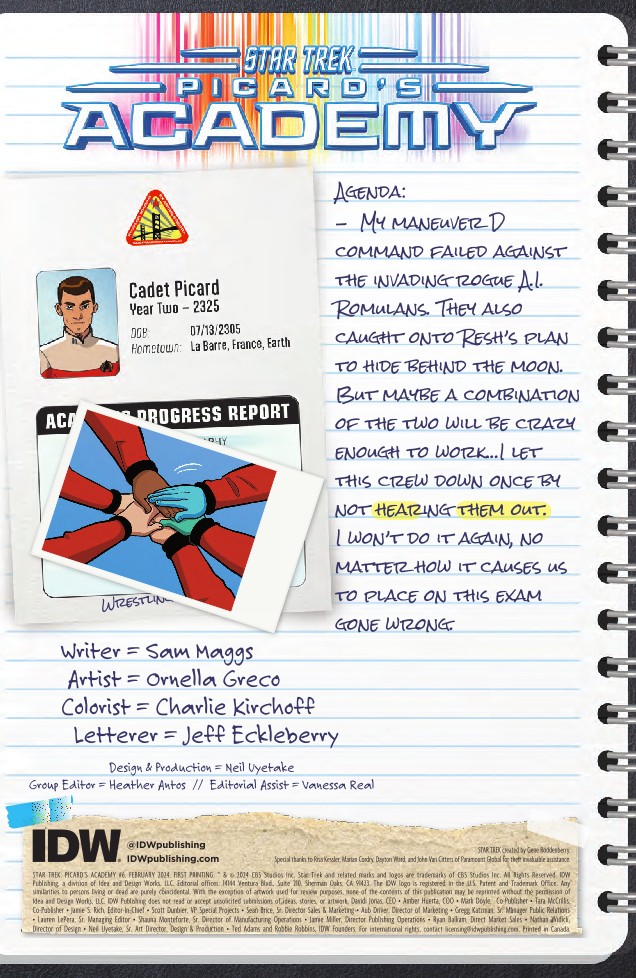 STAR TREK
PICARD'S
ACADEMY
Cadet Picard
Year Two – 2325
DOB: 07/13/2305
Hometown: La Barre, France, Earth
PROGRESS REPORT
WRESTLING
AGENDA:
– MY MANEUVER D
COMMAND FAILED AGAINST
THE INVADING ROGUE A.I.
ROMULANS. THEY ALSO
CAUGHT ONTO RESH'S PLAN
TO HIDE BEHIND THE MOON.
BUT MAYBE A COMBINATION
OF THE TWO WILL BE CRAZY
ENOUGH TO WORK...I LET
THIS CREW DOWN ONCE BY
NOT HEARING THEM OUT.
I WON'T DO IT AGAIN, NO
MATTER HOW IT CAUSES US
TO PLACE ON THIS EXAM
GONE WRONG.
Writer = Sam Maggs
Artist = Ornella Greco
Colorist = Charlie Kirchoff
Letterer = Jeff Eckleberry
Design & Production = Neil Uyetake
Group Editor = Heather Antos // Editorial Assist = Vanessa Real
IDW
@IDWpublishing
IDWpublishing.com
STAR TREK created by Gene Roddenberry.
Special thanks to Risa Kessler, Marian Cordry, Dayton Ward, and John Van Citters of Paramount Global for their invaluable assistance.
STAR TREK: PICARD'S ACADEMY #6. FEBRUARY 2024. FIRST PRINTING. ™ & © 2024 CBS Studios Inc. Star Trek and related marks and logos are trademarks of CBS Studios Inc. All Rights Reserved. IDW
Publishing, a division of Idea and Design Works, LLC. Editorial offices: 14144 Ventura Blvd., Suite 210, Sherman Oaks, CA 91423. The IDW logo is registered in the U.S. Patent and Trademark Office. Any
similarities to persons living or dead are purely coincidental. With the exception of artwork used for review purposes, none of the contents of this publication may be reprinted without the permission of
Idea and Design Works, LLC. IDW Publishing does not read or accept unsolicited submissions of ideas, stories, or artwork. Davidi Jonas, CEO • Amber Huerta, COO • Mark Doyle, Co-Publisher • Tara McCrillis,
Co-Publisher • Jamie S. Rich, Editor-in-Chief • Scott Dunbier, VP Special Projects • Sean Brice, Sr. Director Sales & Marketing • Aub Driver, Director of Marketing • Gregg Katzman, Sr. Manager Public Relations
• Lauren LePera, Sr. Managing Editor • Shauna Monteforte, Sr. Director of Manufacturing Operations • Jamie Miller, Director Publishing Operations • Ryan Balkam, Director Direct Market Sales • Nathan Widick,
Director of Design • Neil Uyetake, Sr. Art Director, Design & Production • Ted Adams and Robbie Robbins, IDW Founders. For international rights, contact licensing@idwpublishing.com. Printed in Canada.